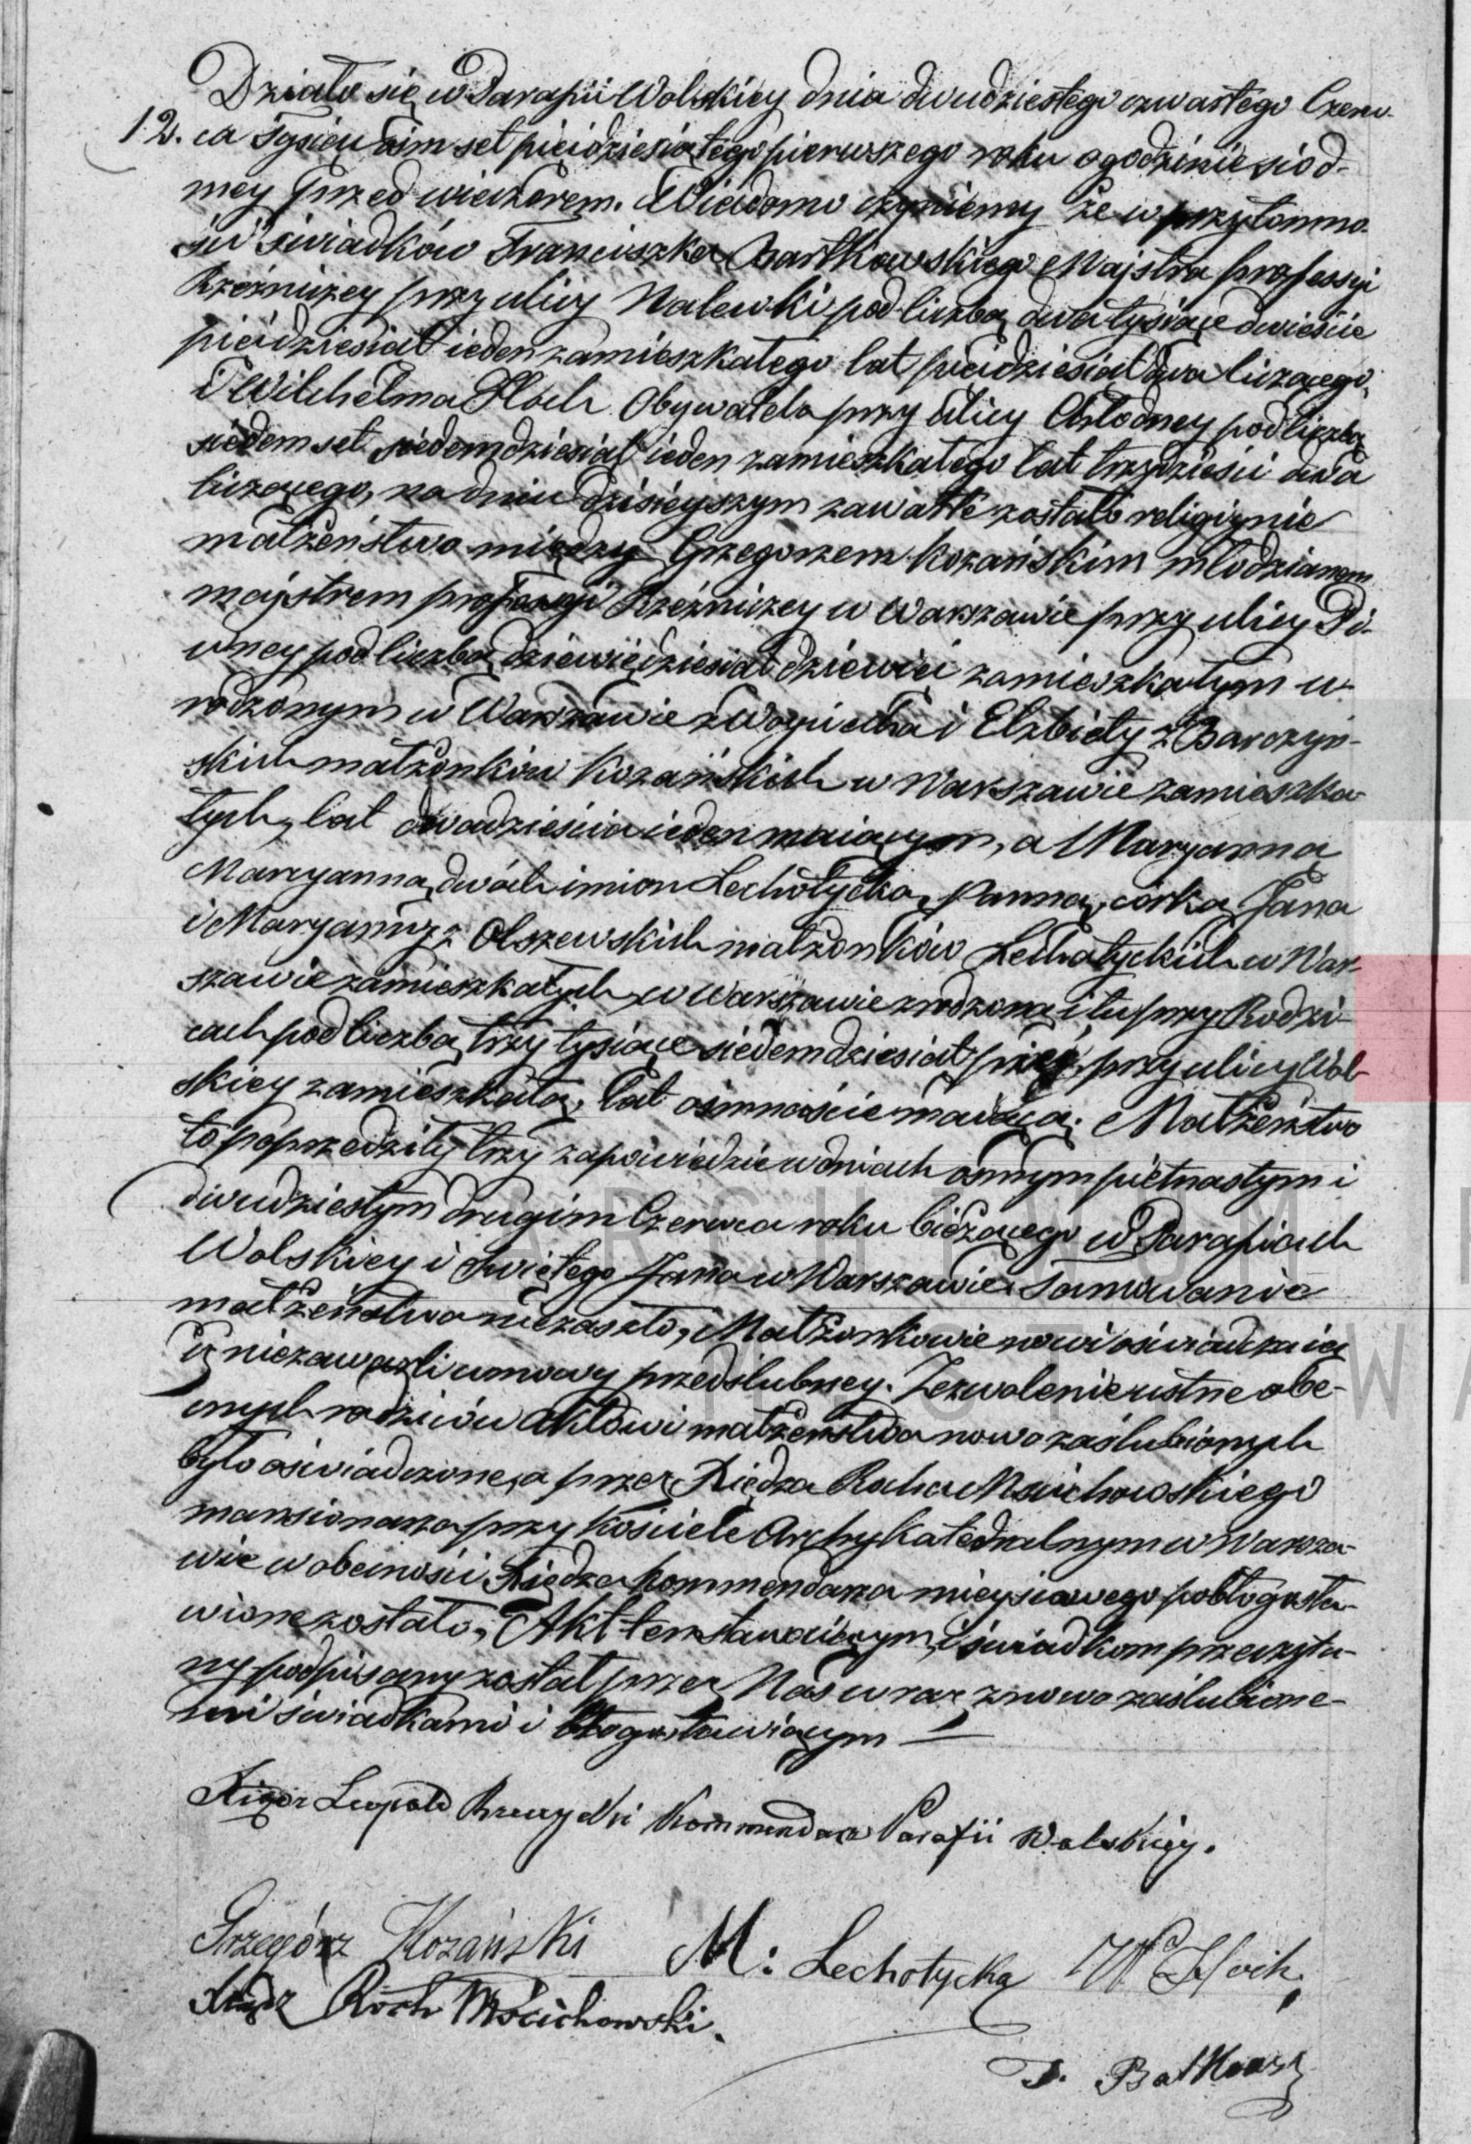 Działo się w Parafii Wolskiey dnia dwudziestego czwartego Czerw-
12. ca Tysiąc ośmset pięćdziesiątego pierwszego roku o godzinie siód-
mey przed wieczorem. Wiadomo czyniemy że w przytomno-
ści świadków Franciszka Bartkowskiego Majstra professyi
Rzeźniczey przy ulicy Nalewki pod liczbą dwatysiące dwieście
pięćdziesiąt ieden zamieszkałego lat pięćdziesiąt dwa liczącego,
i Wilchelma Hoch Obywatela przy ulicy Chłodney pod liczbą
siedemset siedemdziesiąt ieden zamieszkałego lat trzydzieści dwa
liczącego, na dniu dzisieyszym zawarte zostało religiynie
małżeństwo między Grzegorzem Kozańskim młodzianem
majstrem professyi Rzeźniczey w Warszawie przy ulicy Pi-
wney pod liczbą dziewiędziesiąt dziewięć zamieszkałym u-
rodzonym w Warszawie z Woyciecha i Elżbiety z Barczyń-
skich małżonków Kozańskich w Warszawie zamieszka-
łych, lat dwadzieścia ieden maiącym, a Maryanną
Maryanną dwóch imion Lechotycką, Panną, córką Jana
i Maryanny z Olszewskich małżonków Lechotyckich w War-
szawie zamieszkałych, w Warszawie zrodzoną i tu przy Rodzi-
cach pod liczbą trzy tysiące siedemdziesiąt pięć przy ulicy Wol-
skiey zamieszkałą, lat ośmnaście maiącą. Małżeństwo
to poprzedziły trzy zapowiedzie w dniach ósmym piętnastym i
dwudziestym drugim Czerwca roku bieżącego w Parafiach
Wolskiey i Świętego Jana w Warszawie. Tamowanie
małżeństwa nie zaszło, Małżonkowie nowi oświadczaią
iż niezawarli umowy przedślubney. Zezwolenie ustne obe-
cnych rodziców Aktowi małżeństwa nowozaślubionych
było oświadczone, a przez Xiędza Rocha Mścichowskiego
mansionarza przy Kościele Archykatedralnym w Warsza-
wie w obecności Xiędza Kommendarza mieyscowego pobłogosła-
wione zostało, Akt ten stawaiącym i świadkom przeczyta-
ny podpisany został przez Nas wraz z nowo zaślubione-
mi świadkami i błogosławiącym —
Xiądz Leopold Rzeczycki Kommendarz Parafii Wolskiey.
Grzegórz Kozański M: Lechotycka W Hoch
Xiądz Roch Mścichowski.
F.
ARCHIWUM
WA